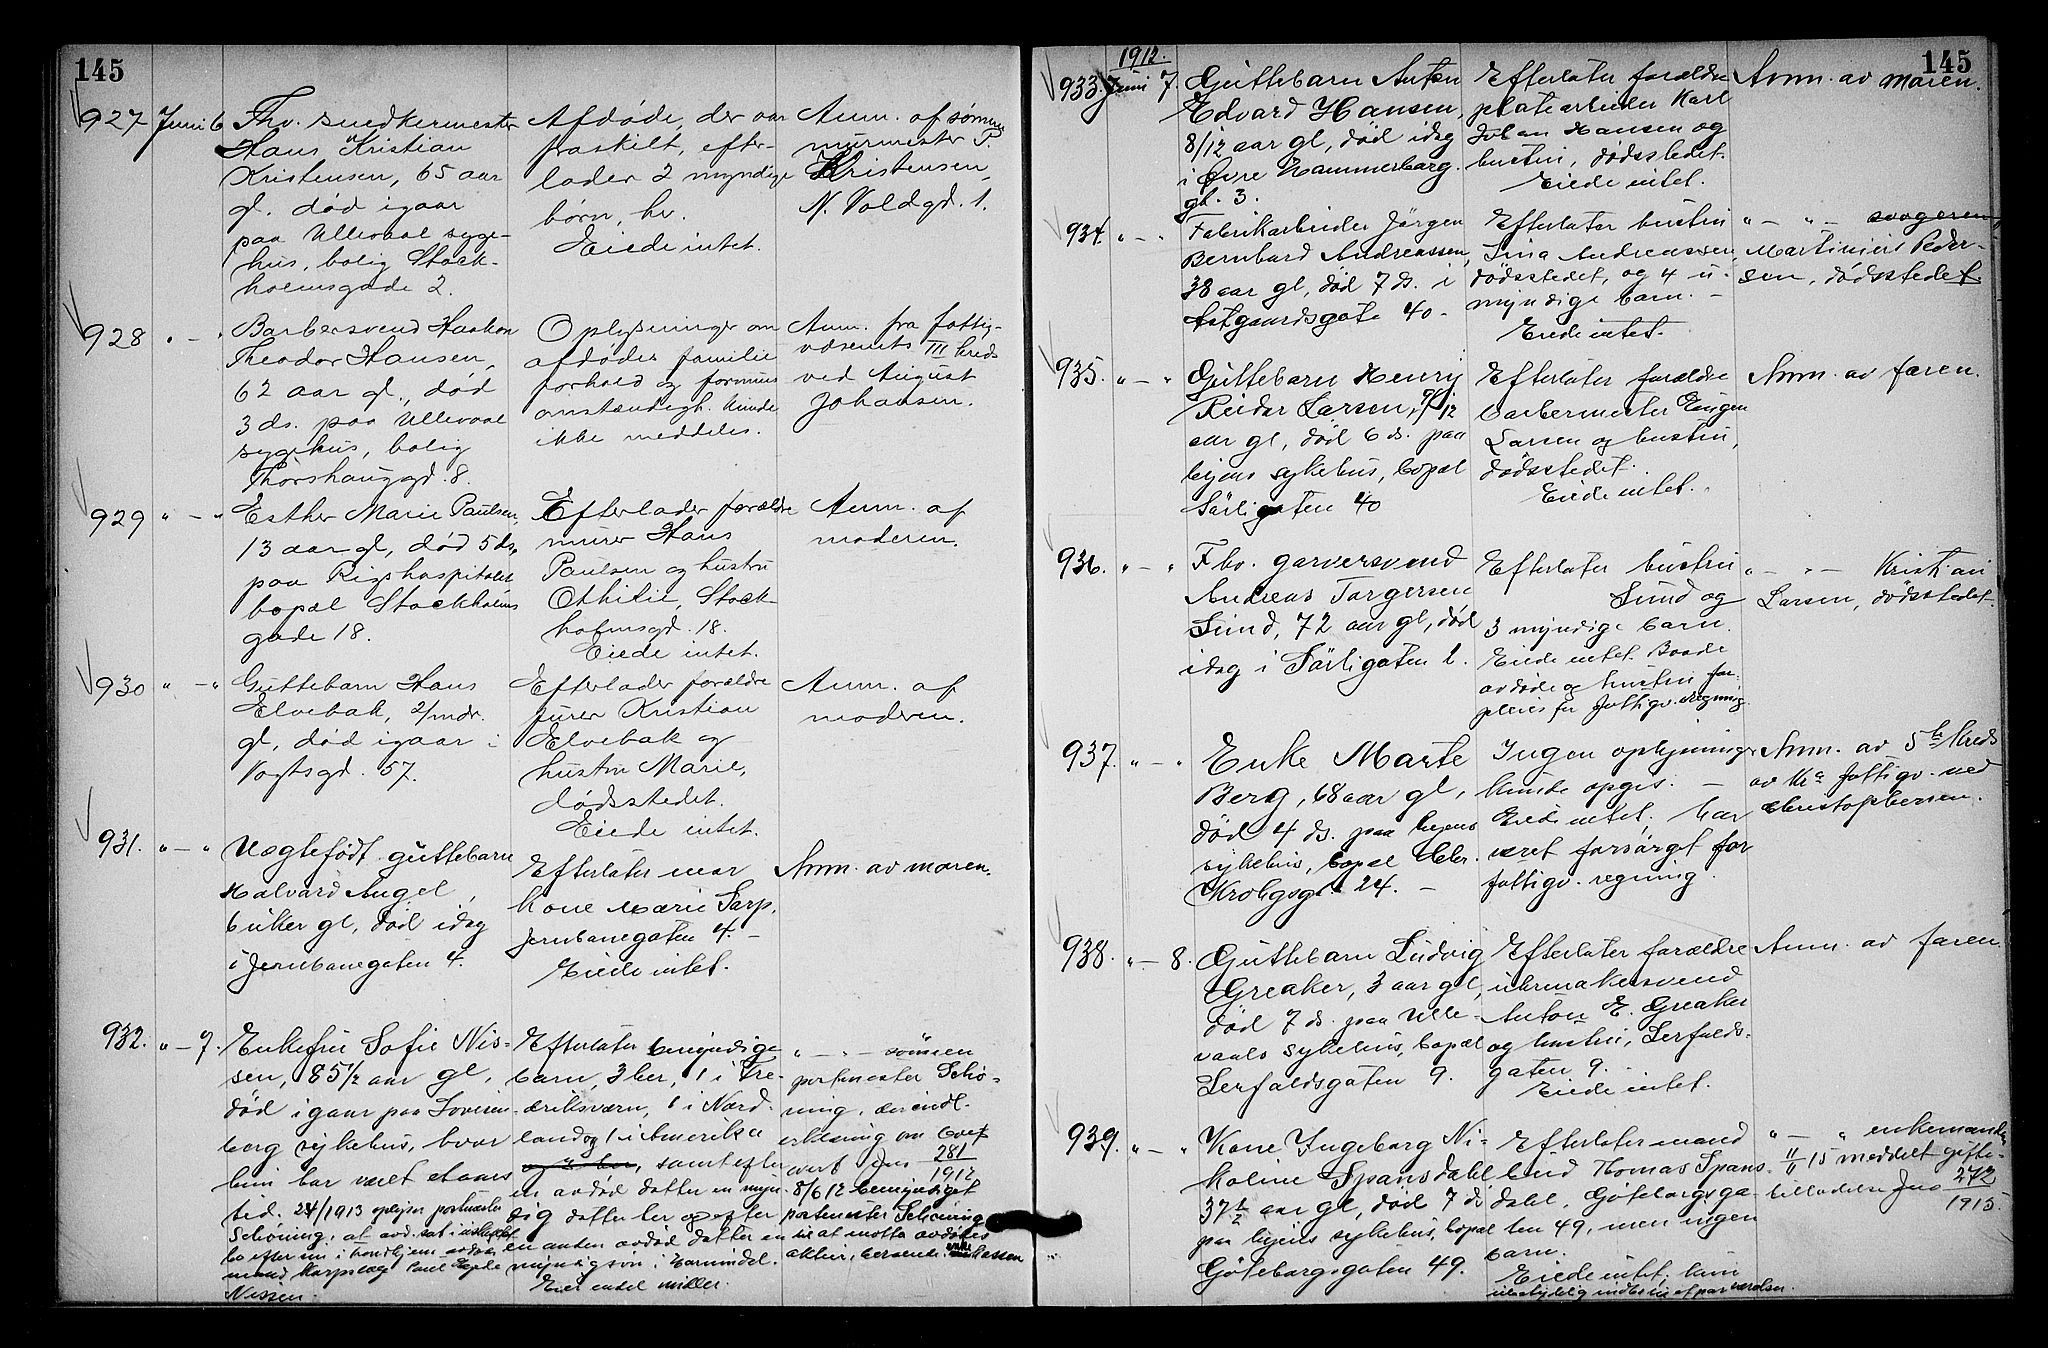 145
927 Juni 6 Fhv. snedkermester
Hans Kristian
Kristensen, 65 aar
gl. död igaar
paa Ullevaal syge-
hus, bolig Stock-
holmsgade 2.
Afdöde, der var
fraskilt, efter-
lader 2 myndige
börn, hv.
Eiede intet.
Anm. af sönnen
murmester P.
Kristensen,
N. Voldgd. 1.
928 " - " Barbersvend Haakon
Theodor Hansen,
62 aar gl., död
3 ds. paa Ullevaal
sygehus, bolig
Thorshauggd. 8.
Oplysninger om
afdödes familie
forhold og formues
omstændigh. kunde
ikke meddeles.
Anm. fra fattig-
væsenets III kreds
ved August
Johansen.
929 " - " Esther Marie Paulsen,
13 aar gl, död 5 ds,
paa Rigshospitalet
bopæl Stockholms
gade 18.
Efterlader forældre
murer Hans
Paulsen og hustru
Othilie, Stock-
holmsgd. 18.
Eiede intet.
Anm. af
moderen.
930 " - " Guttebarn Hans
Elvebak, 2/mdr.
gl, död igaar i
Vogtsgd. 57.
Efterlader forældre
furer Kristian
Elvebak og
hustru Marie,
dödsstedet.
Eiede intet.
Anm. af
moderen.
931. " - " Uægtefödt guttebarn
Halvard Angel,
6 uker gl, död idag
i Jernbanegaten 4.
Efterlater mor
kone Marie Sarp,
Jernbanegaten 4. -
Eiede intet.
Anm. av moren.
932. " - 7. Enkefru Sofie Nis-
sen, 85 1/2 aar gl,
död igaar paa Lovisen-
berg sykehus, hvor
hun har været etaars
tid. 24/1913 oplyser portmester
Schöning, at avd. sat i uskiftet
bo efter sin i Trondhjem avdöde
mand, Korpslæge Paul
Nissen.
Efterlater 6 myndige
barn, 3 her, 1 i Fre-
driksværn, 1 i Nord-
land og 1 i Amerika
, samt efter
en avdöd datter en myn
dig datter her og efter
en anden avdöd datter en
myndig sön i
Eier endel midler.
" - " - sönnen
portmester Schö-
ning, der indl.
erklæring om over
Jno 281
1912
8/6 12 bemyndiget
portmester Schöning
til at motta avdödes
aktier, beroende
145
1912.
933. Juni 7. Guttebarn Anton
Edvard Hansen,
8/12 aar gl, död idag
i Övre Hammersborg.
gt. 3.
Efterlater forældre
platearbeider Karl
Johan Hansen og
hustru, dödsstedet.
Eiede intet.
Anm. av moren.
934. " - " Fabrikarbeider Jörgen
Bernhard Andreassen,
38 aar gl, död 7 ds. i
Åstgaardsgate 40-
Efterlater hustru
Lina Andreassen,
dödsstedet, og 4 u-
myndige barn. -
Eiede intet.
" - " - svogeren
Martinius Peder-
sen, dödsstedet.
935. " - " Guttebarn Henry
Reidar Larsen, 9/12
aar gl, död 6 ds. paa
byens sykehus, bopæl
Sörligaten 40
Efterlater forældre
barbermester Eugen
Larsen og hustru,
dödsstedet.
Eiede intet.
Anm. av faren.
936. " - " Fhv. garversvend
Andreas Torgersen
Lund, 72 aar gl, död
idag i Sörligaten 2.
Efterlater hustru
Lund og
3 myndige barn.
Eiede intet. Baade
avdöde og hustru for-
pleies for fattigv. regning.
" - " - Kristian
Larsen, dödsstedet.
937. " - " Enke Marte
Berg, 68 aar gl,
död 4 ds. paa byens
sykehus, bopæl Chr.
Krohgsgt. 24. -
Ingen oplysninger
kunde opgis. -
Eiede intet, har
været forsörget for
fattigv. regning.
Anm. av 5te kreds
av Kra fattigv. ved
Christophersen.
938. " - 8. Guttebarn Ludvig
Greaker, 3 aar gl,
död 7 ds. paa Ulle-
vaals sykehus, bopæl
Lerfaldsgaten 9.
Efterlater forældre
urmakersvend
Anton E. Greaker
og hustru, Lerfalds-
gaten 9.
Eiede intet.
Anm. av faren.
939. " - " Kone Ingeborg Ni-
koline Spansdahl
37 1/2 aar gl, död 7 ds
paa byens sykehus, bopæl
Göteborgsgaten 49.
Efterlater mand
bud Thomas Spans-
dahl, Göteborgsga-
ten 49, men ingen
barn.
Eiede intet; kun
ubetydelig indbo
" - " enkemanden
II/II 15 meddelt gifte-
tilladelse Jno 272
1915.